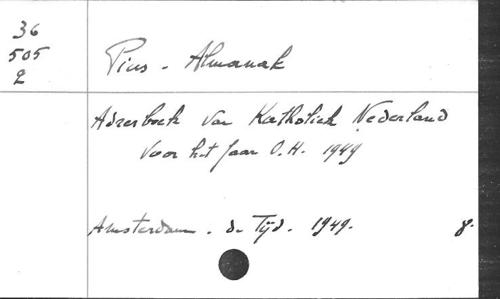 36
505
2
Pius - Almanak
Adresboek van Katholiek Nederland
voor het Jaar O.H. 1949
Amsterdam. de Tijd. 1949. 8.